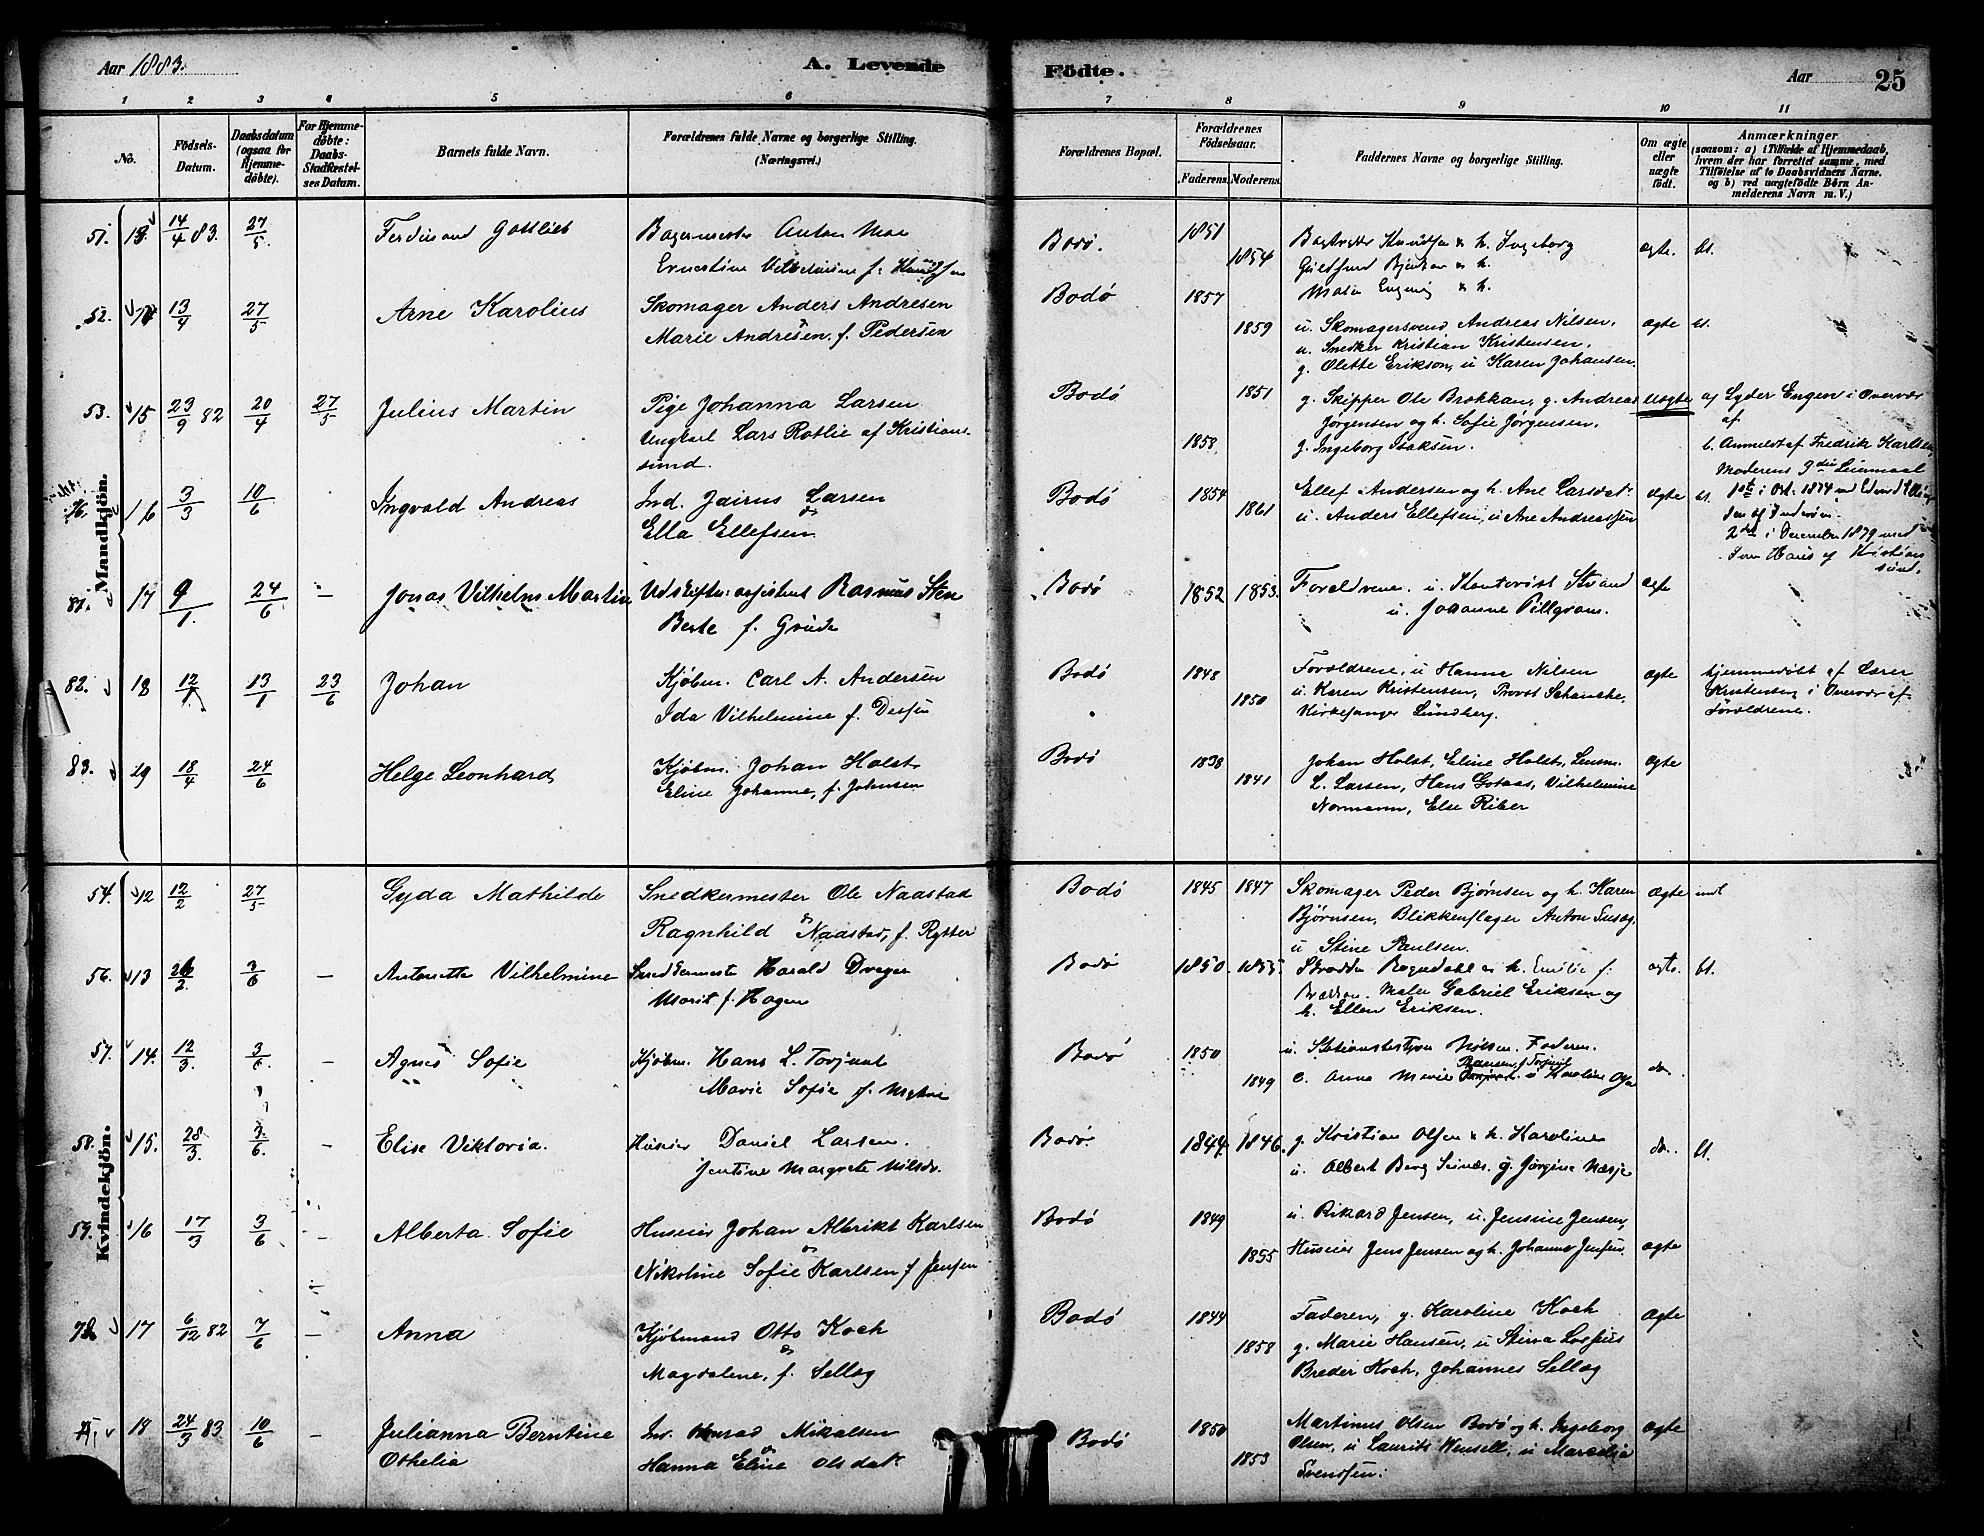 Aar 1883.
A. Levende Födte.
Aar 25
1 2 3 4 5 6 7 8 9 10 11
No.
Födsels-Datum.
Daabsdatum (ogsaa for Hjemme-döbte).
For Hjemme-döbte: Daabs-Stadfæstel-ses Datum.
Barnets fulde Navn.
Forældrenes fulde Navne og borgerlige Stilling. (Næringsvei.)
Forældrenes Bopæl.
Forældrenes Födselsaar.
Faderens. Moderens.
Faddernes Navne og borgerlige Stilling.
Om ægte eller uægte födt.
Anmærkninger
(saasom: a) i Tilfælde af Hjemmedaab,
hvem der har forrettet samme, med
Tilföielse af to Daabsvidners Navne.
og b) ved uægtefödte Börn An-
melderens Navn m. V.)
Mandkjön.
51. 13. 14/4 83. 27/5 Ferdinand Gottlieb Bagermester Anton Moe Bodø. 1851
Ernestine f. 1854 & h. Ingeborg ægte.
52. 13/4 27/5 Arne Karolius Skomager Anders Andresen Bodø 1857
Marie Andresen f. Pedersen 1859 u. Skomagersvend Andreas Nilsen, ægte
u. Snedker Kristian Kristensen,
g. Olette Erikson, u Karen Johansen.
53. 15 23/9 82 20/4 27/5 Julius Martin Pige Johanna Larsen Bodø 1851 g. Skipper Ole Brækkan, g. Andreas uægte af Lyder Engen i Overvær
Ungkarl Lars Rotlie af Kristian- Jørgensen og h. Sofie Jørgensen. af
sund. 1858 g. Ingeborg Isaksen. b. Anmeldt af Fredrik Karlsen,
Moderens 3die Leiermaal
16 3/3 10/6 Ingvald Andreas Ind. Jairus Larsen Bodø 1854 Ellef Andersen og h. Ane Larsdt. ægte 1ste i Oct. 1874
Ella Ellefsen 1861 u. Anders Ellefsen, u Ane Andreassen
2det i December 1879 med
Hans af Kristian
sund.
81. 17 9/1. 24/6 — Jonas Vilhelm Martin Udskiftn: assistent Rasmus Sten Bodø 1852 1853. Foreldrene. u. Kontorist Strand ægte
Berte f. Grude u. Johanne Pillgram.
82. 18 12/1 13/1 23/6 Johan Kjøbm. Carl A. Andersen Bodø 1848 Forældrene, u Hanna Nilsen ægte hjemmedøbt af Lærer
Ida Vilhelmine f. 1850 u. Karen Kristensen, Provst Schanche, Kristensen i Overvær af
Kirkesanger Lundberg. Forældrene.
83. 19 18/4 24/6 Helge Leonhard Kjøbm. Johan Holst Bodø 1838 Johan Holst, Eline Holst, ægte
Eline Johanne, f. Johnsen 1841 L. Larsen, Hans Gotaas, Vilhelmine
Normann, Else Riber
Kvindekjön.
54. 12 12/2 27/5 Gyda Mathilde Snedkermester Ole Naastad Bodø 1845 1847 Skomager Peder Bjørnsen og h. Karen ægte
Ragnhild Naastad, f. Rytter Bjørnsen, Blikkenslager Anton
u Stine Paulsen.
56. 13 26/2. 3/6 — Antonette Vilhelmine Snedkermester Harald Dreyer Bodø 1850. 1855. h. Emilie f. ægte.
Marit f. Hagen Maler Gabriel Eriksen og
h. Ellen Eriksen.
57. 14. 12/3. 3/6. — Agnes Sofie Kjøbm. Hans L. Torjunt Bodø 1850 u. Nilsen. Faderen.
Marie Sofie f. 1849 Anna Marie u Karoline do.
58. 15. 28/3. 3/6. — Elise Viktoria. Huseier Daniel Larsen. Bodø. 1844. 1846. g. Kristian Olsen & h. Karoline do.
Jentine Margrete Nilsdr. u. Albert Berg g. Jørgine
59. 16 17/3 3/6 — Alberta Sofie Huseier Johan Albrikt Karlsen Bodø 1849 u. Rikard Jensen, u. Jensine Jensen,
Nikoline Sofie Karlsen f Jensen 1855 Huseier Jens Jensen og h. Johanna Jensen. ægte
78 17 6/12 82 7/6 — Anna Kjøbmand Otto Koch Bodø 1844 Faderen, g. Karoline Koch ægte
Magdalene, f. Sellæg 1858 g. Marie Hansen, u
Breder Koch, Johannes Sellæg
18 24/3 83 10/6 — Julianna Berntine Mikalsen Bodø 1850 Martinus Olsen Bodø og h. Ingeborg ægte
Othelia Hanna Eline Olsdatr. 1853 Olsen, u Laurits Wensell, u Marselie
Svensen.